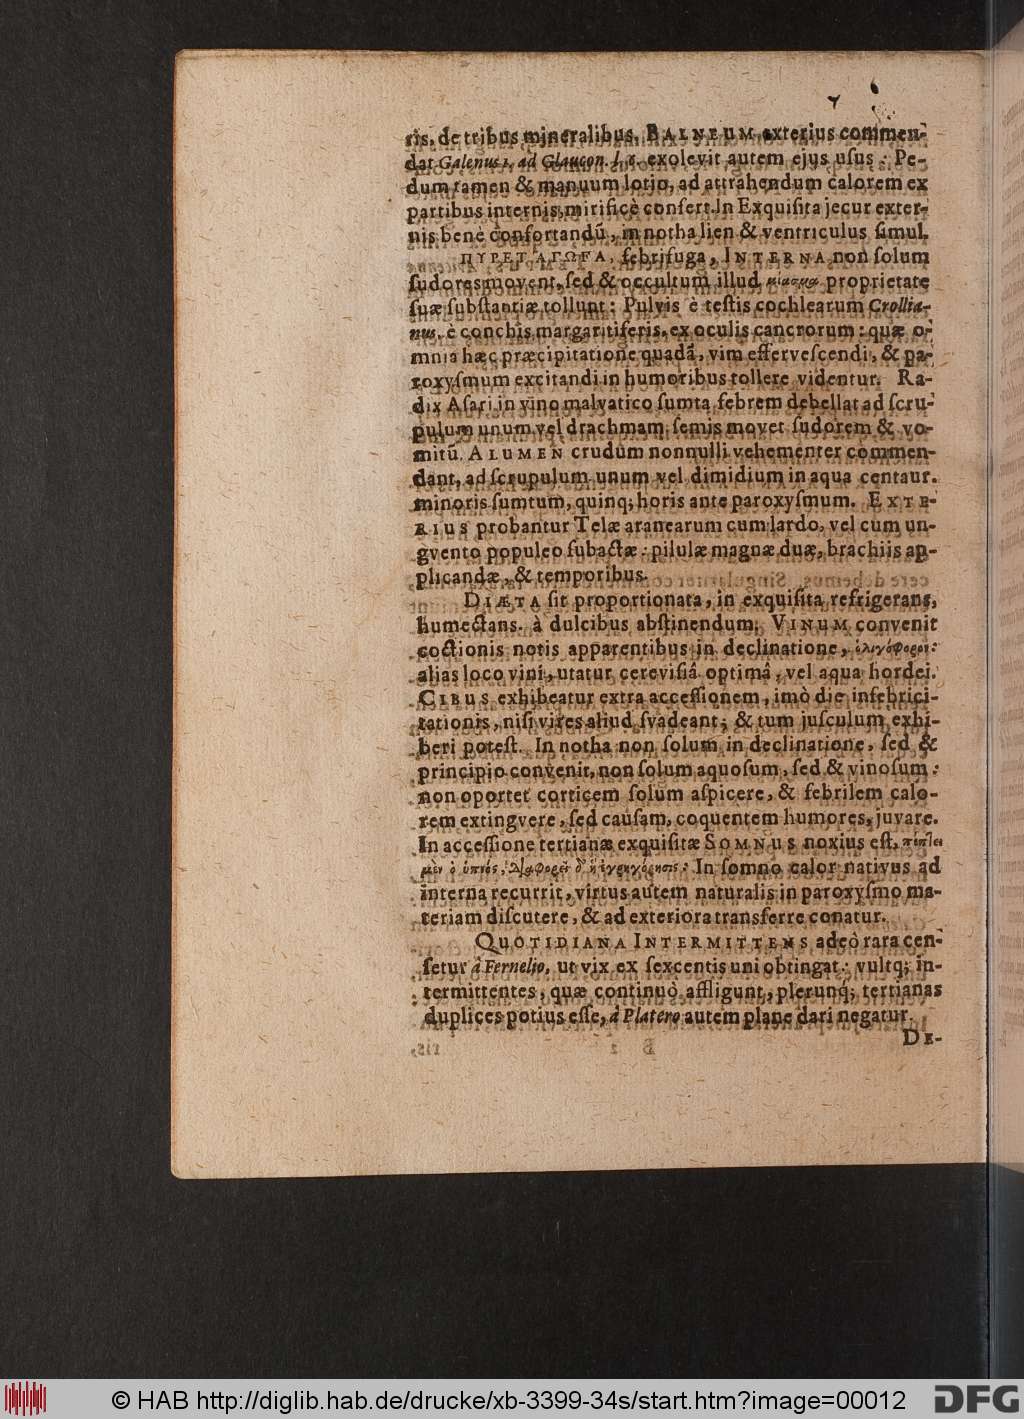 ris, de tribus mineralibus. BALNEUM exterius commen-
dat Galenus 1. ad Glaucon. exolevit autem ejus uſus: Pe-
dum tamen & manuum lotio, ad attrahendum calorem ex
partibus internis, mirificè confert. In Exquiſita jecur exter-
nis benè confortandū, in notha lien & ventriculus ſimul.
ΠΥΡΕΤΑΓΩΓΑ, febrifuga, INTERNA non ſolum
ſudores movent, ſed & occultum illud μίασμα proprietate
ſuæ ſubſtantiæ tollunt: Pulvis è teſtis cochlearum Crollia-
nus, è conchis margaritiferis, ex oculis cancrorum: quæ o-
mnia hæc præcipitatione quadā, vim efferveſcendi, & pa-
roxyſmum excitandi in humoribus tollere videntur. Ra-
dix Aſari in vino malvatico ſumta febrem debellat ad ſcru-
pulum unum vel drachmam ſemis movet ſudorem & vo-
mitū. ALUMEN crudum nonnulli vehementer commen-
dant, ad ſcrupulum unum vel dimidium in aqua centaur.
minoris ſumtum, quinq; horis ante paroxyſmum. EXTE-
RIUS probantur Telæ aranearum cum lardo, vel cum un-
gvento populeo ſubactæ: pilulæ magnæ duæ, brachiis ap-
plicandæ, & temporibus.
DIÆTA ſit proportionata, in exquiſita refrigerans,
humectans. à dulcibus abſtinendum. VINUM convenit
coctionis notis apparentibus in declinatione, ὀλιγόφορον:
alias loco vini, utatur cereviſiâ optimâ, vel aqua hordei.
CIBUS exhibeatur extra acceſſionem, imò die infebrici-
tationis, niſi vires aliud ſvadeant; & tum juſculum exhi-
beri poteſt. In notha non ſolum in declinatione, ſed &
principio convenit, non ſolum aquoſum, ſed & vinoſum:
non oportet corticem ſolum aſpicere, & febrilem calo-
rem extingvere, ſed cauſam, coquentem humores, juvare.
In acceſſione tertianæ exquiſitæ SOMNUS noxius eſt, πέπτει
μὲν ὁ ὕπνος, διαφορεῖ δ' ἡ ἐγρηγόρησις: In ſomno calor nativus ad
interna recurrit, virtus autem naturalis in paroxyſmo ma-
teriam diſcutere, & ad exteriora transferre conatur.
QUOTIDIANA INTERMITTENS adeò rara cen-
ſetur à Fernelio, ut vix ex ſexcentis uni obtingat: vultq; in-
termittentes, quæ continuò affligunt, plerunq; tertianas
duplices potius eſſe, à Platero autem planè dari negatur.
DE-
© HAB http://diglib.hab.de/drucke/xb-3399-34s/start.htm?image=00012
DFG